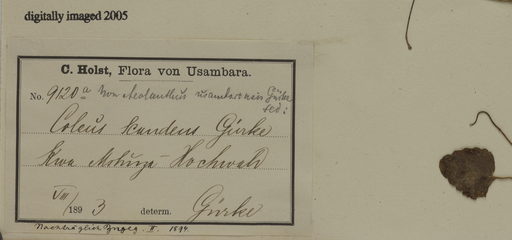 digitally imaged 2005
C. Holst, Flora von Usambara.
No. 9120 a non Aeolanthus usambarensis Gürke
sed:
Coleus scandens Gürke
Kwa Mshuza - Hochwald
VIII/1893 determ. Gürke
Nachträglich II. 1894